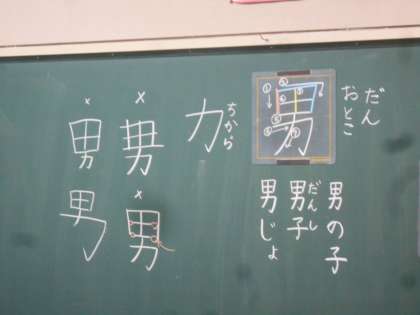 だん
おとこ
男の子
男子
だんし
男じょ
① ② ③ ④ ⑤ ⑥
男
力
ちから
× ×
男 男
×
男 男